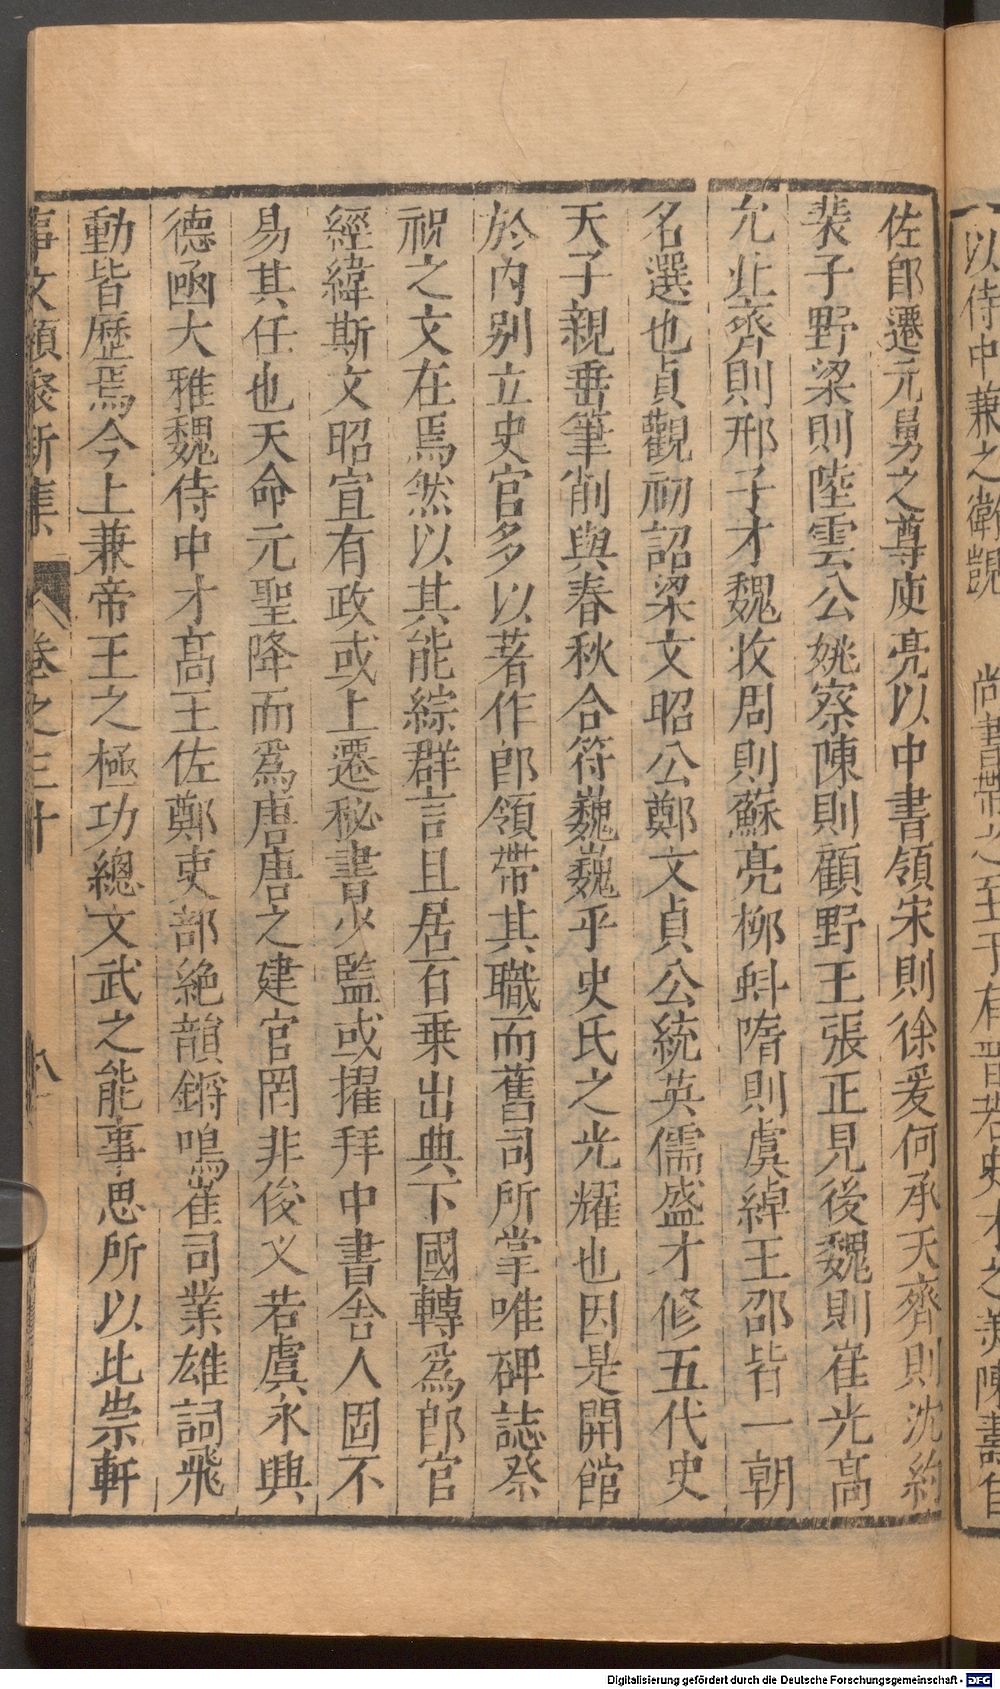 以侍中兼之衛覬　尚書帶之至于有晋若史才之美陳壽自
佐郎遷元舅之尊庾亮以中書領宋則徐爰何承天齊則沈約
裴子野梁則陸雲公姚察陳則顧野王張正見後魏則崔光高
允北齊則邢子才魏收周則蘇亮柳蚪隋則虞綽王邵皆一朝
名選也貞觀初詔梁文昭公鄭文貞公統英儒盛才修五代史
天子親垂筆削與春秋合符巍巍乎史氏之光耀也因是開館
於内別立史官多以著作郎領帶其職而舊司所掌唯碑誌祭
祝之文在焉然以其能綜群言且居百乗出典下國轉爲郎官
經緯斯文昭宣有政或上遷秘書少監或擢拜中書舍人固不
易其任也天命元聖降而爲唐唐之建官罔非俊乂若虞永興
德函大雅魏侍中才高王佐鄭吏部絶韻鏘鳴崔司業雄詞飛
動皆歴焉今上兼帝王之極功總文武之能事思所以比崇軒
事文類聚新集　卷之三十　八
Digitalisierung gefördert durch die Deutsche Forschungsgemeinschaft - DFG